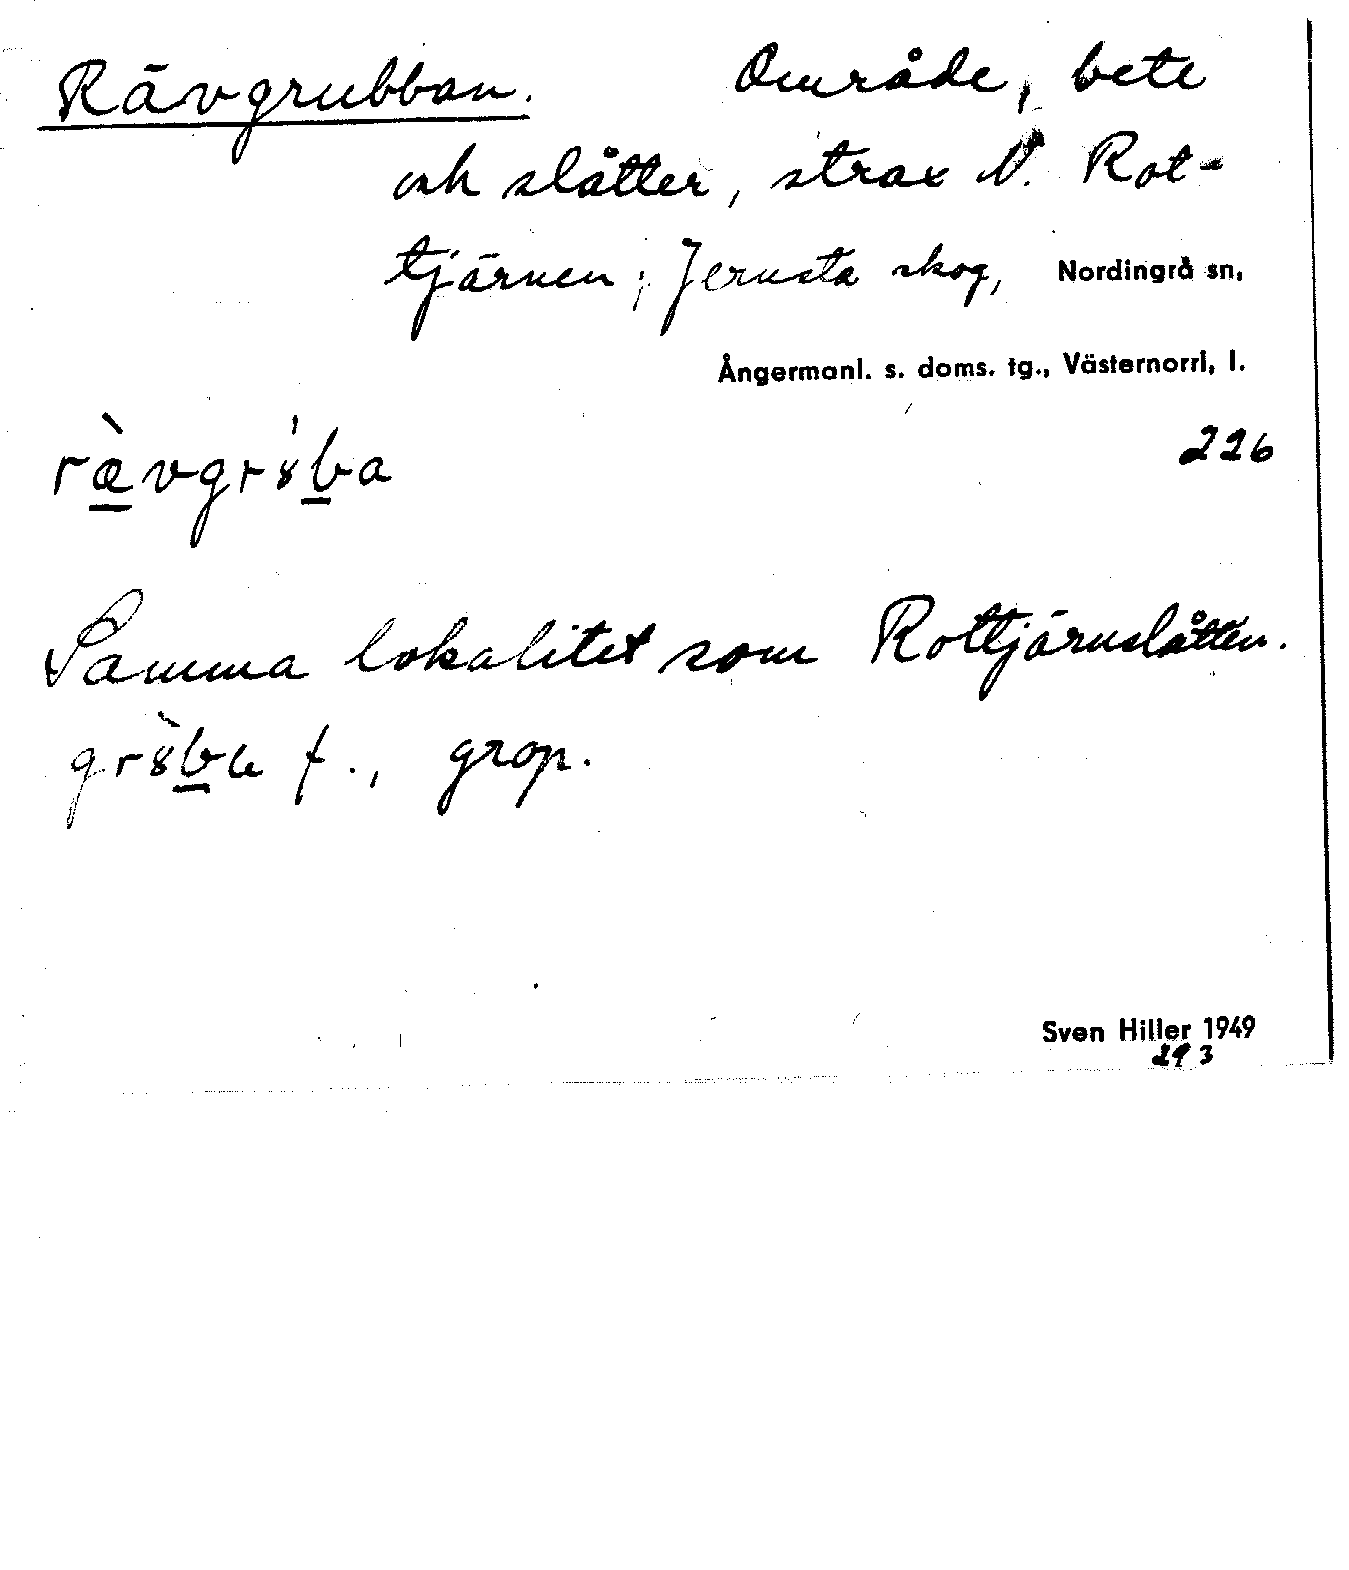 Rävgrubban. Område, bete
och slåtter, strax N. Rot-
tjärnen; Jerusta skog, Nordingrå sn,
Ångermanl. s. doms. tg., Västernorrl, l.
226
ræ̠̀vgrȣ́b̠a
Samma lokalitet som Rottjärnslåtten.
grȣ̀b̠a f., grop.
Sven Hiller 1949
293